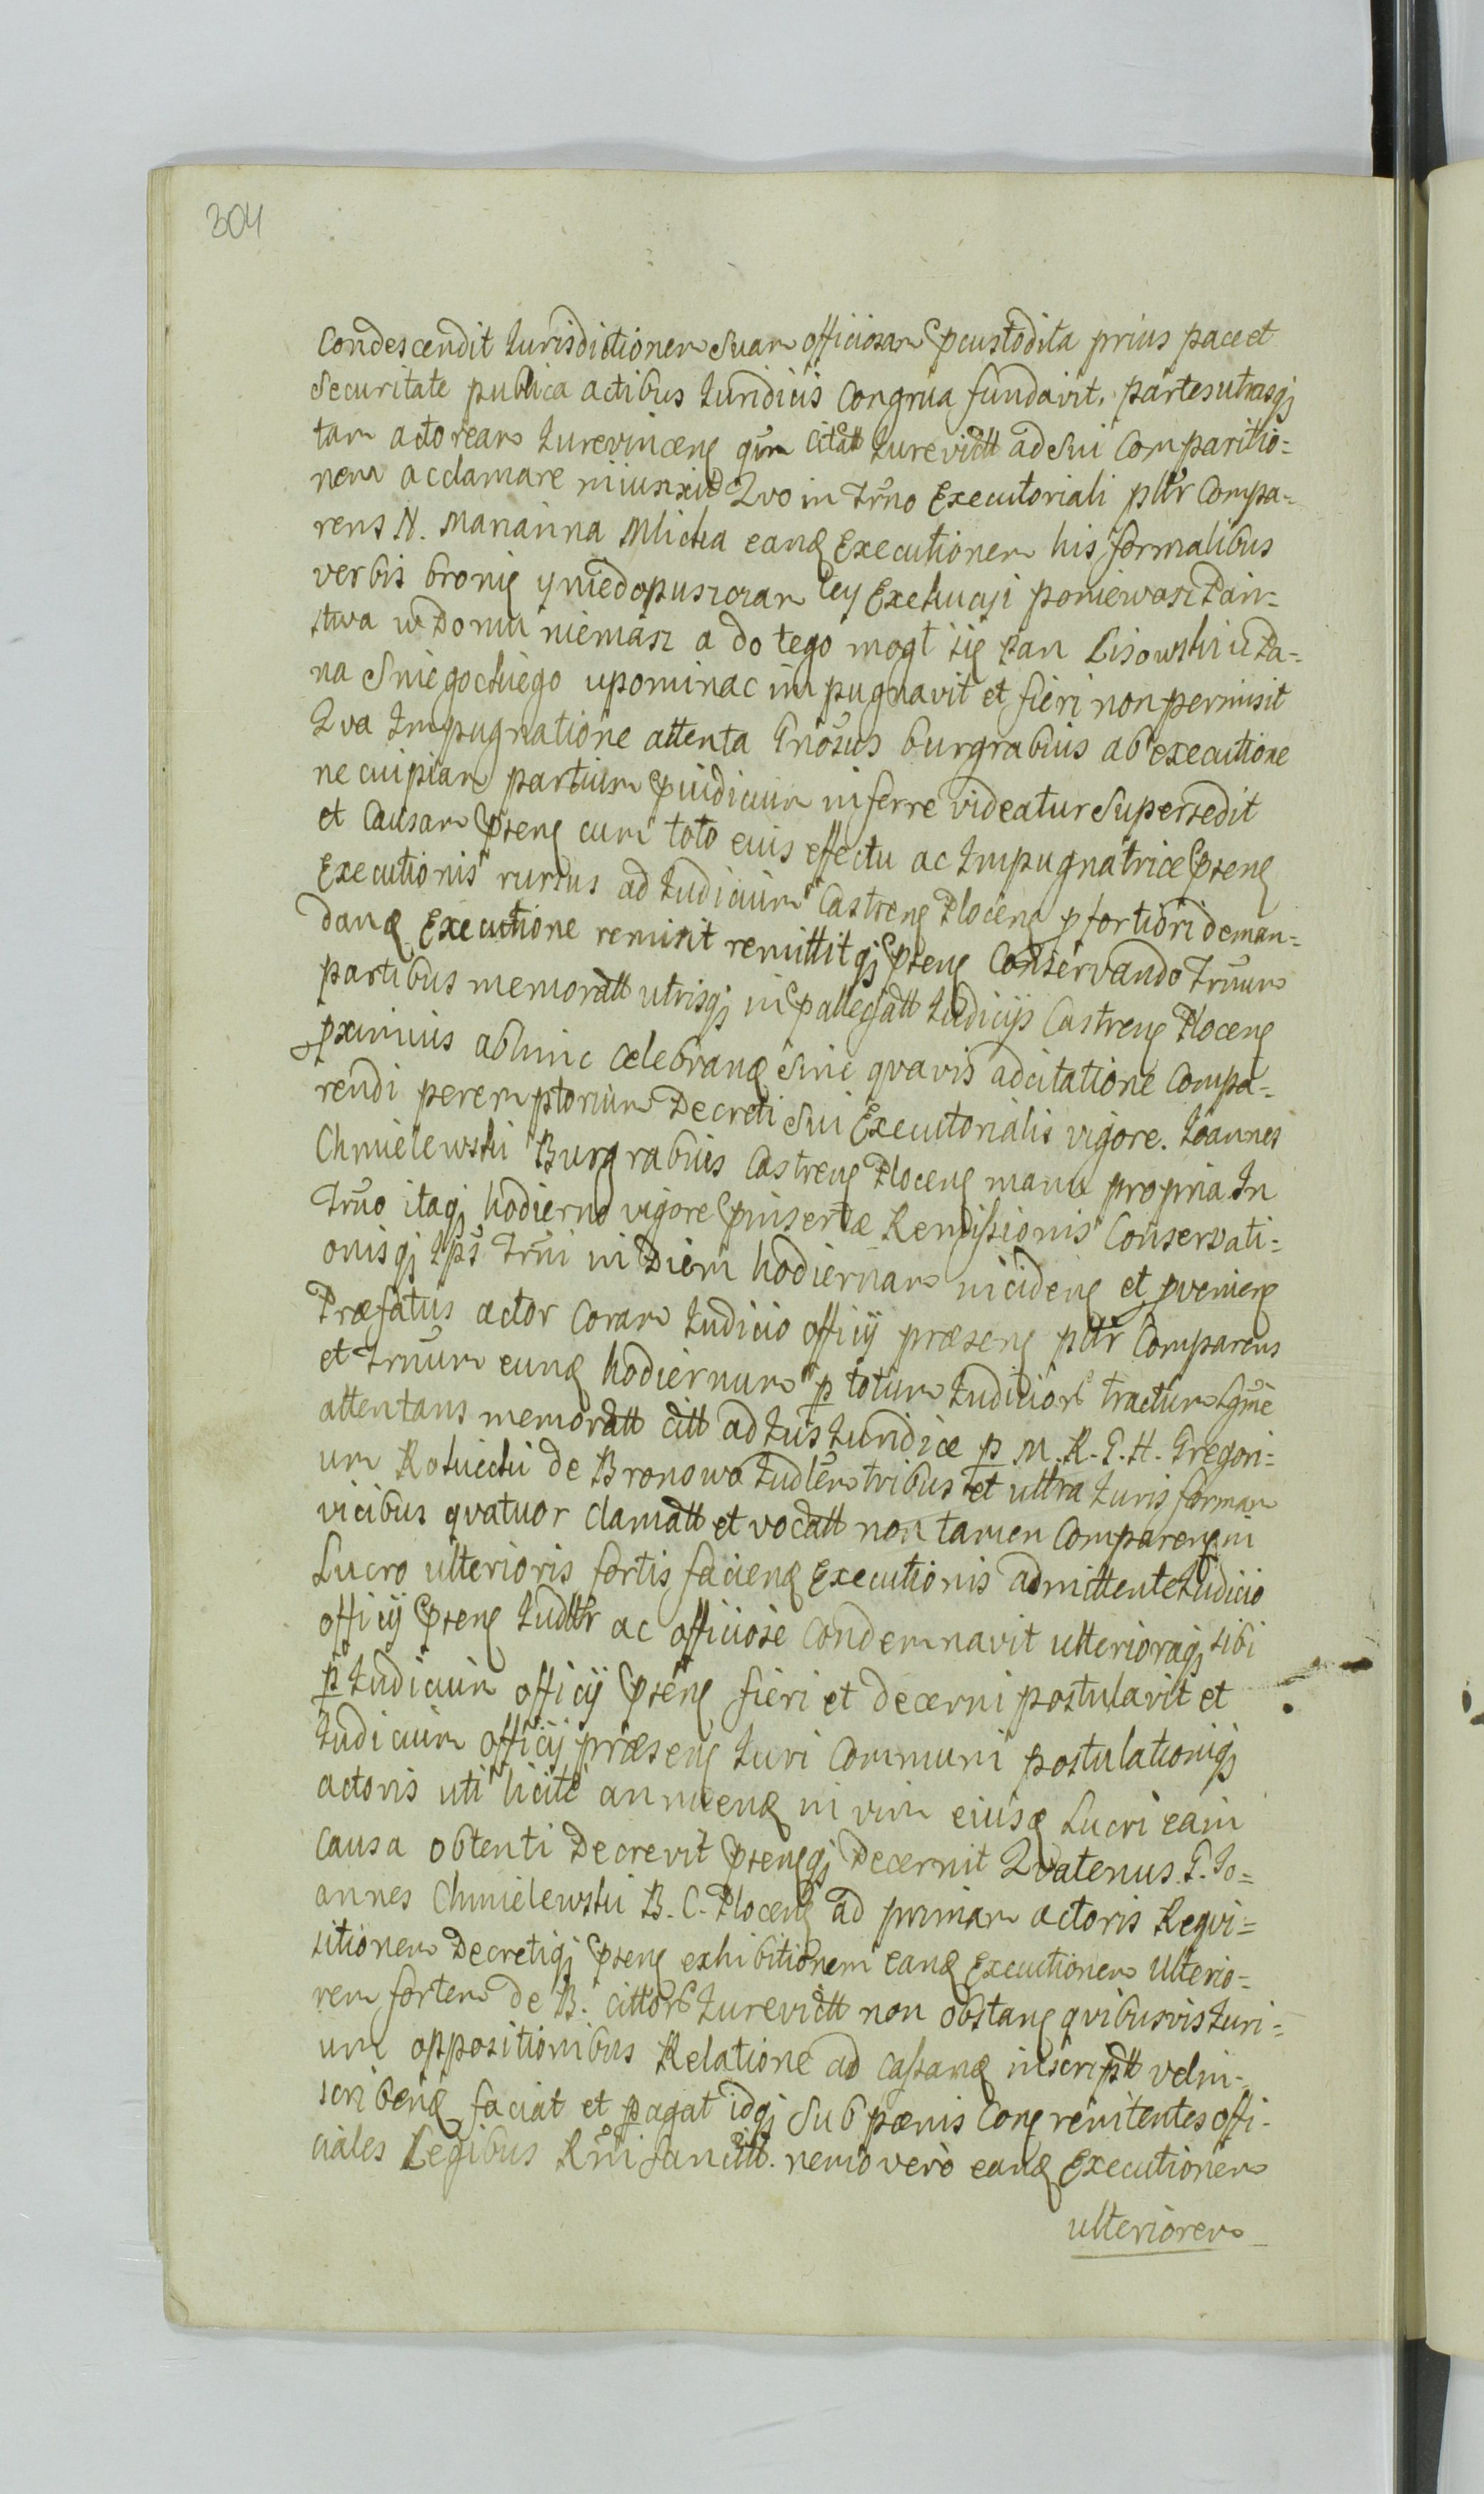 304
Condescendit Iurisdictionem Suam officiosam pcustodita prius pace et
Securitate publica actibus Iuridicis Congrua fundavit. partes utrasqȝ
tam actoream Iurevincenę qm citatt Iurevictt ad Sui Comparitio=
nem acclamare iniunxit Qvo in Trno Executoriali pltr Compa=
rens N. Marianna Mlicka eandę Executionem his formalibus
verbis bronię y niedopuszczam tey Exekucyi poniewasz Pań=
stwa w Domu niemasz a do tego mogł się Pan Lisowski u Pa=
na Sniegockiego upominac impugnavit et fieri non permisit
Qva Impugnatione attenta Gnosus burgrabius ab executione
ne cuipiam partium piudicium inferre videatur Supersedit
et Causam psenę cum toto eius effectu ac Impugnatrice psenę
Executionis rursus ad Iudicium Castrenę Plocenę p fortiori deman=
dandę Executione remisit remittitqȝ psenę Conservando Trnum
partibus memoratt utrisqȝ in pallegatt Iudicijs Castrenę Plocenę
pximius abhinc celebrandę sine qvavis adcitatione Compa=
rendi peremptorium Decreti Sui Executorialis vigore. Ioannes
Chmielewski Burgrabius Castrenę Plocenę manu propria In
Trno itaqȝ hodierno vigore pinsertæ Remissionis Conservati=
onisqȝ Ipsȝ Trni in Diem hodiernam incidenę et pvenienę
Præfatus actor Coram Iudicio officij præsenę pltr Comparens
et Trnum eundę hodiernum p totum Iudicior tractum Lgme
attentans memoratt citt ad Ius Iuridice p M. R. G. H. Gregori=
um Rokicki de Bronowo Iudlem tribus et ultra Iuris formam
vicibus qvatuor clamatt et vocatt non tamen Comparenę in
Lucro ulterioris fortis faciendę Executionis admittente Iudicio
officij psenę Iudltr ac officiose Condemnavit ulterioraqȝ sibi
p Iudicium officij psenę fieri et decerni postulavit et
Iudicium officij præsenę Iuri Communi postulationiqȝ
actoris uti licite annuendę in vim eiusdę Lucri eain
causa obtenti Decrevit psenęqȝ Decernit Qvatenus. G. Io=
annes Chmielewski B. C. Plocenę ad primam actoris Reqvi=
sitionem Decretiqȝ psenę exhibitionem eandę Executionem Ulterio=
rem fortem de B. cittor Iurevictt non obstanę qvibusvis Iuri=
um oppositionibus Relatione ad cassandę inscriptt vel in=
scribendę faciat et pagat idqȝ Sub pœnis Conę renitentes offi=
ciales Legibus Rni sancitt. nemo verò eandę Executionem
ulteriorem